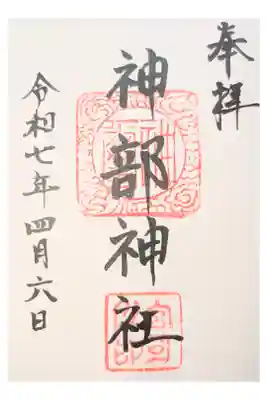 奉拝
神部神社
令和七年四月六日